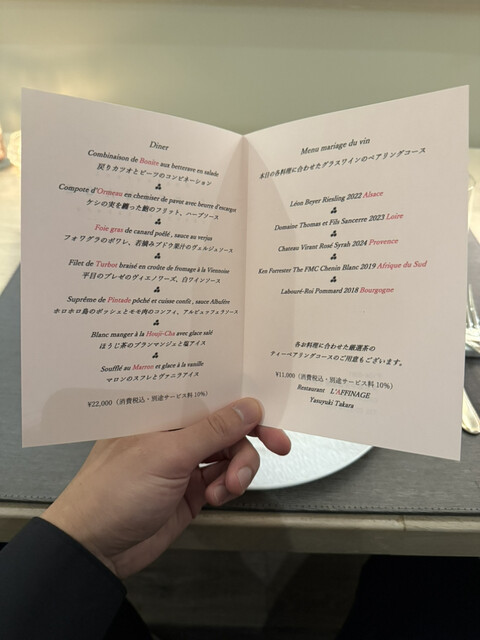 Dîner
Combinaison de Bonite aux betterave en salade
戻りカツオとビーツのコンビネーション
Compote d'Ormeau en chemiser de pavot avec beurre d'escargot
ケシの実を纏った鮑のフリット、ハーブソース
Foie gras de canard poêlé , sauce au verjus
フォワグラのポワレ、若摘みブドウ果汁のヴェルジュソース
Filet de Turbot braisé en croûte de fromage à la Viennoise
平目のブレゼのヴィエノワーズ、白ワインソース
Suprême de Pintade pôché et cuisse confit , sauce Albuféra
ホロホロ鳥のポッシェとモモ肉のコンフィ、アルビュッフェラソース
Blanc manger à la Houji-Cha avec glace salé
ほうじ茶のブランマンジェと塩アイス
Soufflé au Marron et glace à la vanille
マロンのスフレとヴァニラアイス
¥22,000（消費税込・別途サービス料 10%）
Menu mariage du vin
本日の各料理に合わせたグラスワインのペアリングコース
Léon Beyer Riesling 2022 Alsace
Domaine Thomas et Fils Sancerre 2023 Loire
Chateau Virant Rosé Syrah 2024 Provence
Ken Forrester The FMC Chenin Blanc 2019 Afrique du Sud
Labouré-Roi Pommard 2018 Bourgogne
各お料理に合わせた厳選茶の
ティーペアリングコースのご用意もございます。
¥11,000（消費税込・別途サービス料 10%）
Restaurant L'AFFINAGE
Yasuyuki Takara